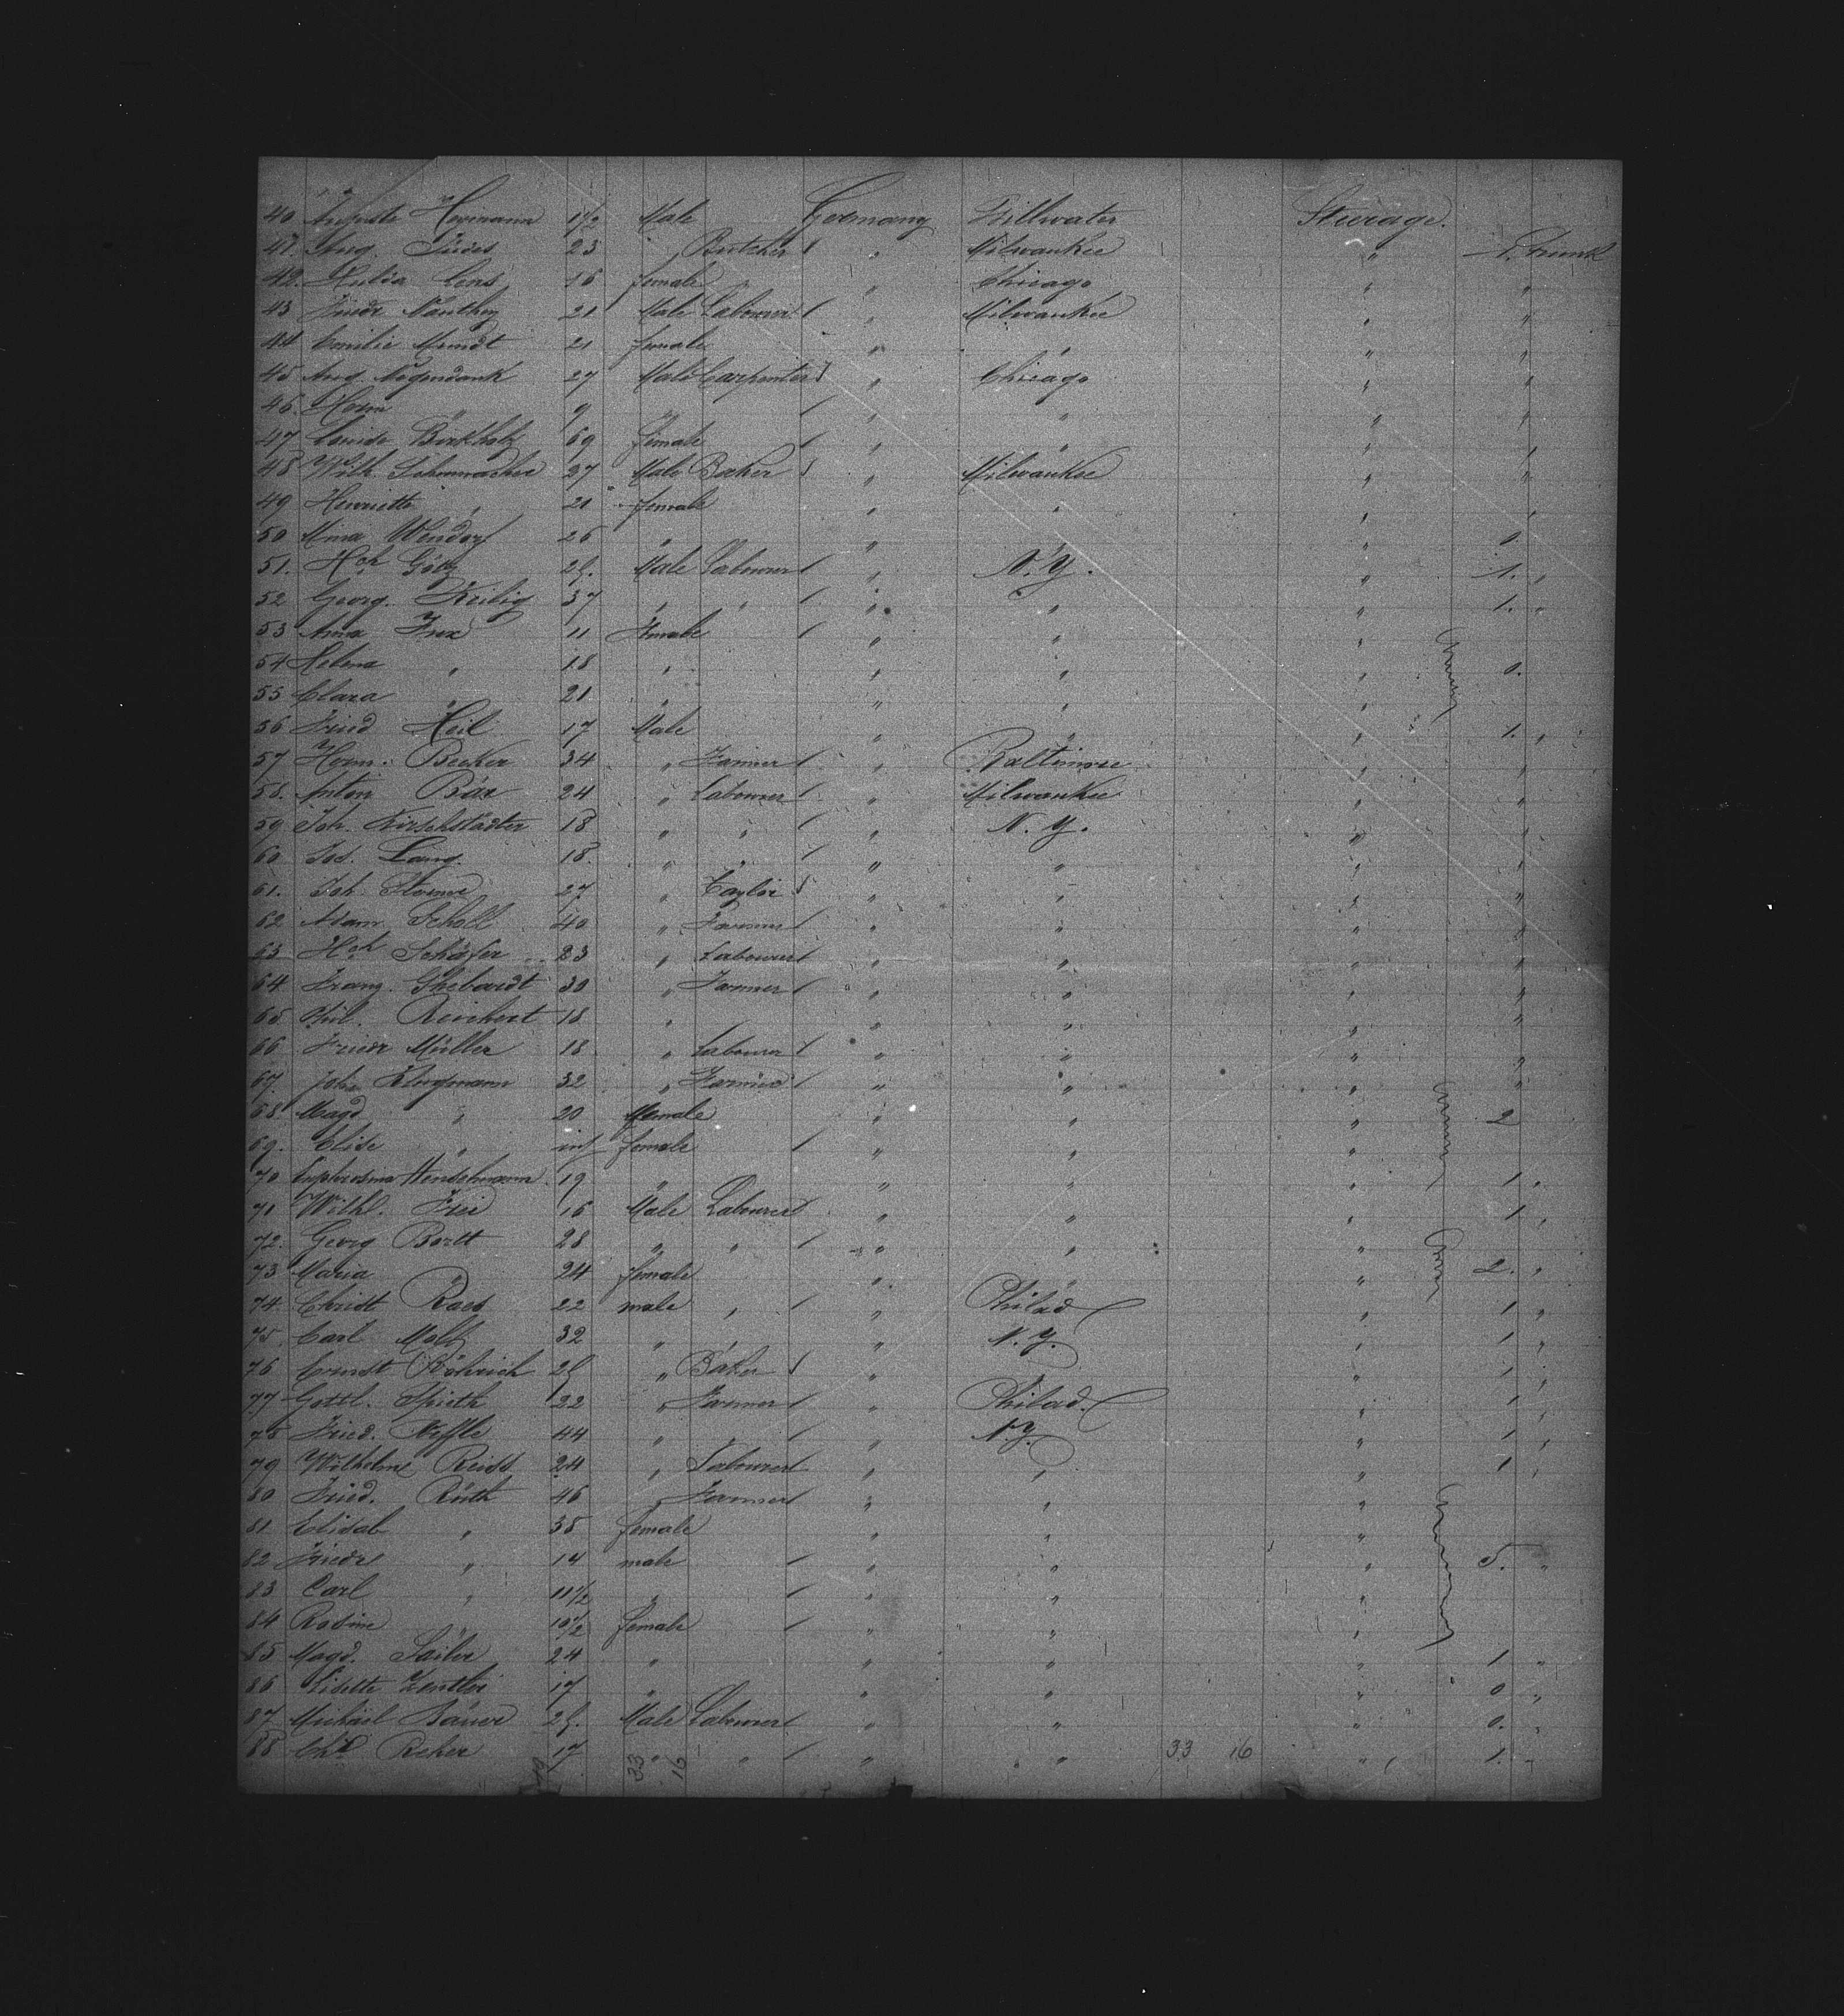 40 Auguste Hermann 1 1/2 Male Germany Stillwater Steerage.
41. Aug. 23 " Butcher " Milwaukee " 1. Trunk
42. Hulda 16 female " Chicago " "
43 Friedr Manthey 21 Male Labourer " Milwaukee " "
44 Emilie Arndt 21 female " " " "
45 Aug. Nagendank 27 Male Carpenter " Chicago " "
46. Herm " 9 " " " "
47 Louise Birkholz 69 female " " " "
48 Wilh. Schumacher 27 Male Baker " Milwaukee " "
49 Henriette " 21 female " " " "
50 Mina Wendorf 26 " " " " 0.
51. Hch Götz Male Labourer " N. Y. " 1. "
52 Georg. Keilig 37 " " " " " 1. "
53 Anna Fux 11 Female " " "
54 Helena " 18 " " " " 0.
55 Clara " 21 " " " "
56 Fried Heil 17 Male " " " 1. "
57 Herm. Becker 34 " Farmer " Baltimore " "
58. Anton Bär 24 " Labourer " Milwaukee " "
59 Joh. Kirschstädter 18 " " " N. Y. " "
60 Jos. Lang. 18. " " " " " "
61. Joh. 27 " Taylor " " " "
62 Adam Scholl 40 " Farmer " " " "
63 Hch Schäfer 23 " Labourer " " " "
64 Franz. Ghebardt 30 " Farmer " " " "
65. Phil. Reichert 18 " " " " "
66 Friedr Müller 18 " Labourer " " " "
67. John Klugmann 32 " Farmer " " " "
68. Magd " 20 Female " " " 2
69. Elise " inf female " " "
70 Euphrosina Henschmann 19 " " " " 1 "
71 Wilhl. Frei 16 Male Labourer " " " 1 "
72. Georg Bortt 28 " " " " "
73 Maria " 24 female " " " 2. "
74 Christ Raes 22 male " " Philad " 1 "
75 Carl Maltz 32 " " " N. Y. " 1 "
76 Ernst Röhrich " Baker " " 1 "
77 Gottl. Spieth 22 " Farmer " Philad. " 1 "
78 Fried. Neffle 44 " " " N. Y. " 1 "
79 Wilhelm Reiss 24 " Labourer " " " 1 "
80 Fried. Rüth 46 " Farmer " " "
81 Elisab " 38 female " " "
82 Friedr " 14 male " " " 5. "
83 Carl " 11 1/2 " " " "
84 Rosine " 10 1/2 female " " "
85 Magd. Sailer 24 " " " " 1 "
86 Lisette Zentler 17 " " " " 0 "
87 Michael Bauer Male Labourer " " " 0. "
88 Chr Reker 17 " " " " 33 16 " 1. "
33 16